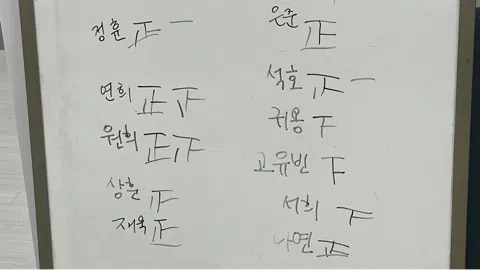 정훈 正 一
연희 正
원희 正
상훈
재욱 正
은준 正
석호 正 一
귀용 下
고유빈 下
서희 下
나연 正